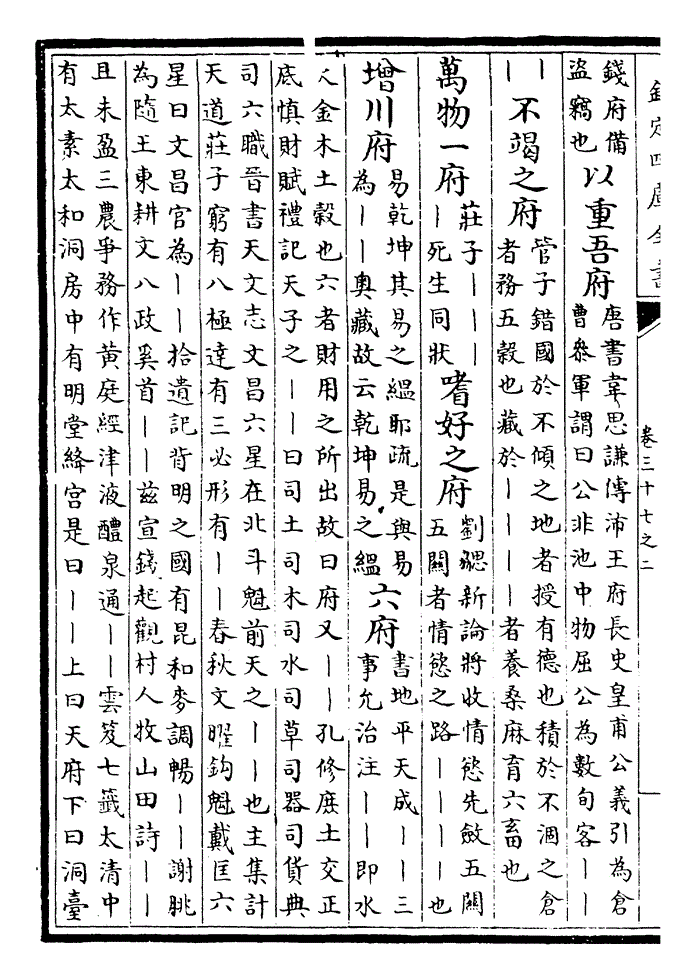 欽定四庫全書
卷三十七之二
錢府備
盜竊也
以重吾府
唐書韋思謙傳沛王府長史皇甫公義引為倉
曹叅軍謂曰公非池中物屈公為數旬客丨丨
丨
丨
不竭之府
管子錯國於不傾之地者授有德也積於不涸之倉
者務五穀也藏於丨丨丨丨者養桑麻育六畜也
萬物一府
莊子丨丨丨
丨死生同狀
嗜好之府
劉勰新論將收情慾先斂五關
五關者情慾之路丨丨丨丨也
增川府
易乾坤其易之縕耶疏是與易
為丨丨奥藏故云乾坤易之縕
六府
書地平天成丨丨三
事允治注丨丨即水
火金木土穀也六者財用之所出故曰府又丨丨孔修庶土交正
底慎財賦禮記天子之丨丨曰司土司木司水司草司器司貨典
司六職晉書天文志文昌六星在北斗魁前天之丨丨也主集計
天道莊子窮有八極達有三必形有丨丨春秋文曜鈎魁戴匡六
星曰文昌宫為丨丨拾遺記背明之國有昆和麥調暢丨丨謝朓
為隨王東耕文八政奚首丨丨兹宣錢起觀村人牧山田詩丨丨
且未盈三農爭務作黄庭經津液醴泉通丨丨雲笈七籤太清中
有太素太和洞房中有明堂絳宫是曰丨丨上曰天府下曰洞臺